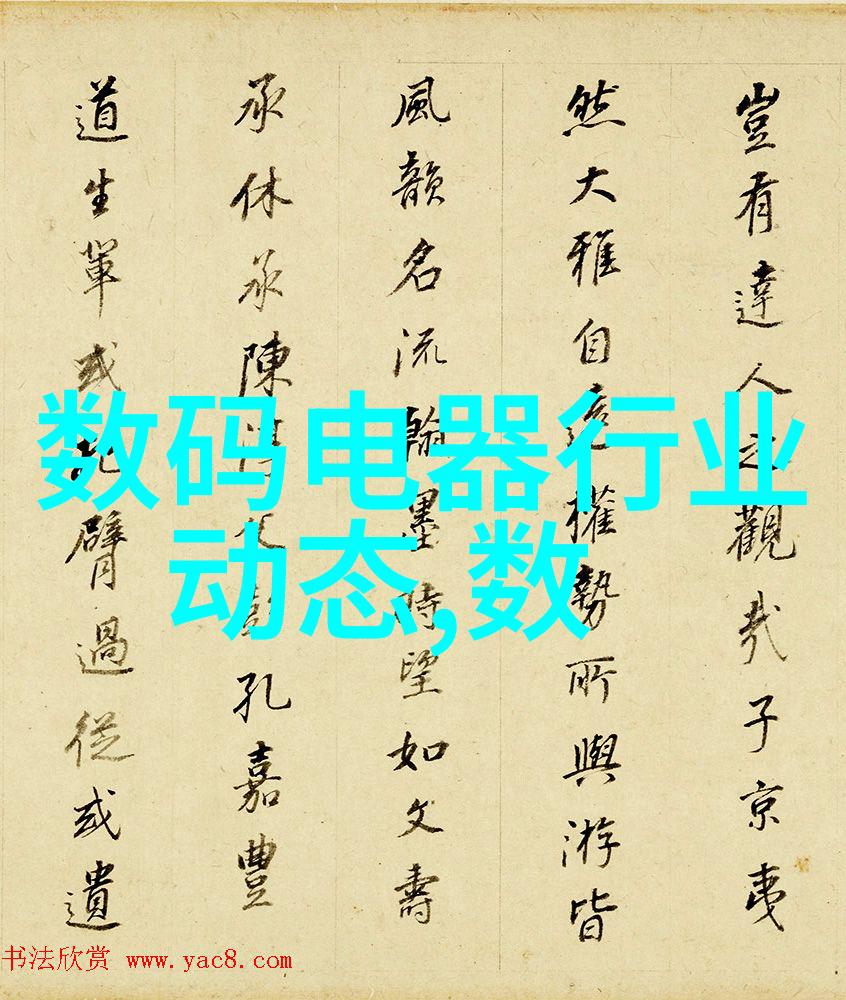 豈有達人之觀哉子京夷
然大雅自遠權勢所與游皆
風韻名流翰墨時望如文壽
承休承陳淳父彭孔嘉豐
道生輩或把臂過從或遺
数码电器行业
动态,数
书法欣赏 www.yac8.com